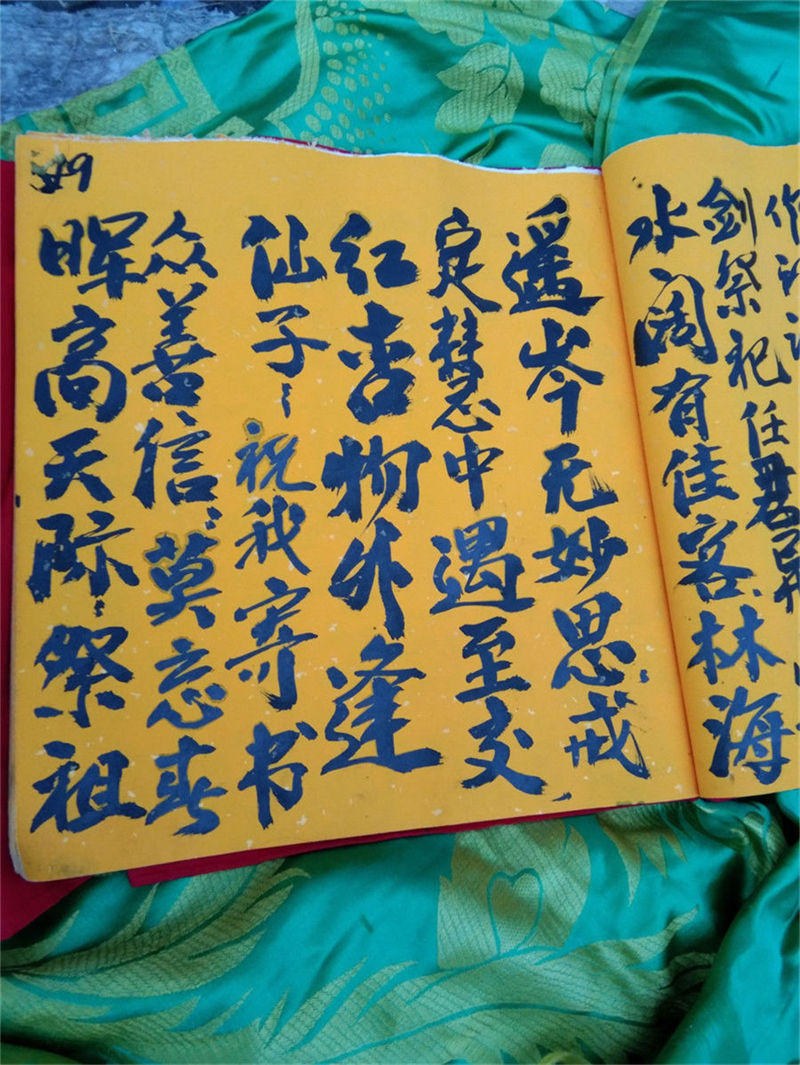 剑祭祀任君
水阔有佳客林海
遥岑无妙思戒
定慧中遇至交
红杏物外逢
仙子〻祝我寄书
众善信〻莫忘春
晖高天际〻祭祖